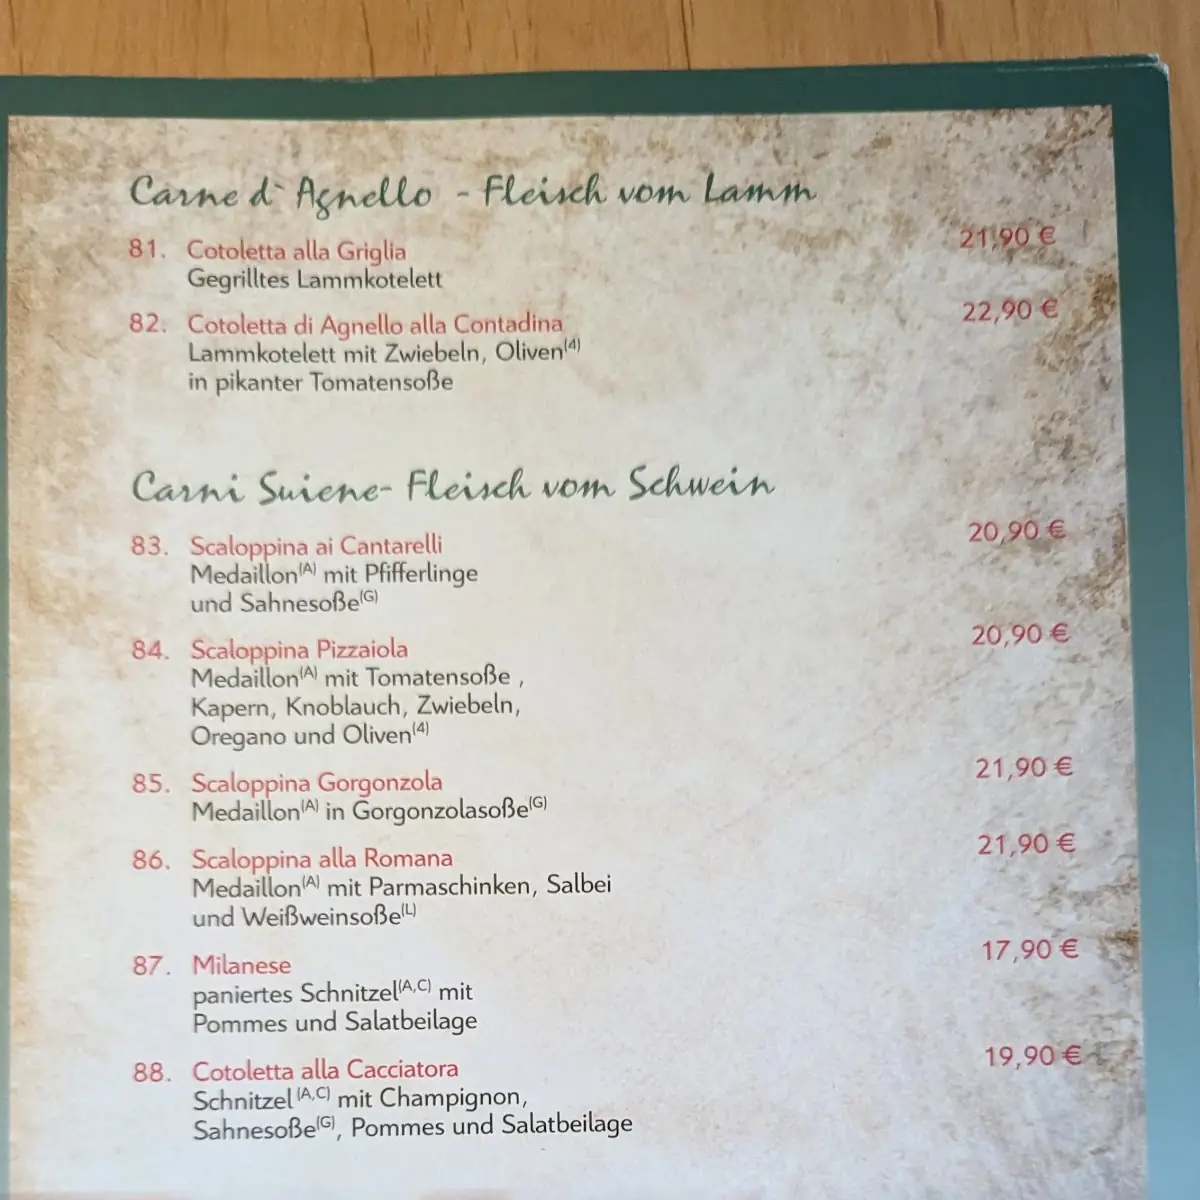 Carne d` Agnello - Fleisch vom Lamm
81. Cotoletta alla Griglia 21,90 €
Gegrilltes Lammkotelett
82. Cotoletta di Agnello alla Contadina 22,90 €
Lammkotelett mit Zwiebeln, Oliven(4)
in pikanter Tomatensoße
Carni Suiene- Fleisch vom Schwein
83. Scaloppina ai Cantarelli 20,90 €
Medaillon(A) mit Pfifferlinge
und Sahnesoße(G)
84. Scaloppina Pizzaiola 20,90 €
Medaillon(A) mit Tomatensoße ,
Kapern, Knoblauch, Zwiebeln,
Oregano und Oliven(4)
85. Scaloppina Gorgonzola 21,90 €
Medaillon(A) in Gorgonzolasoße(G)
86. Scaloppina alla Romana 21,90 €
Medaillon(A) mit Parmaschinken, Salbei
und Weißweinsoße(L)
87. Milanese 17,90 €
paniertes Schnitzel(A,C) mit
Pommes und Salatbeilage
88. Cotoletta alla Cacciatora 19,90 €
Schnitzel (A,C) mit Champignon,
Sahnesoße(G), Pommes und Salatbeilage